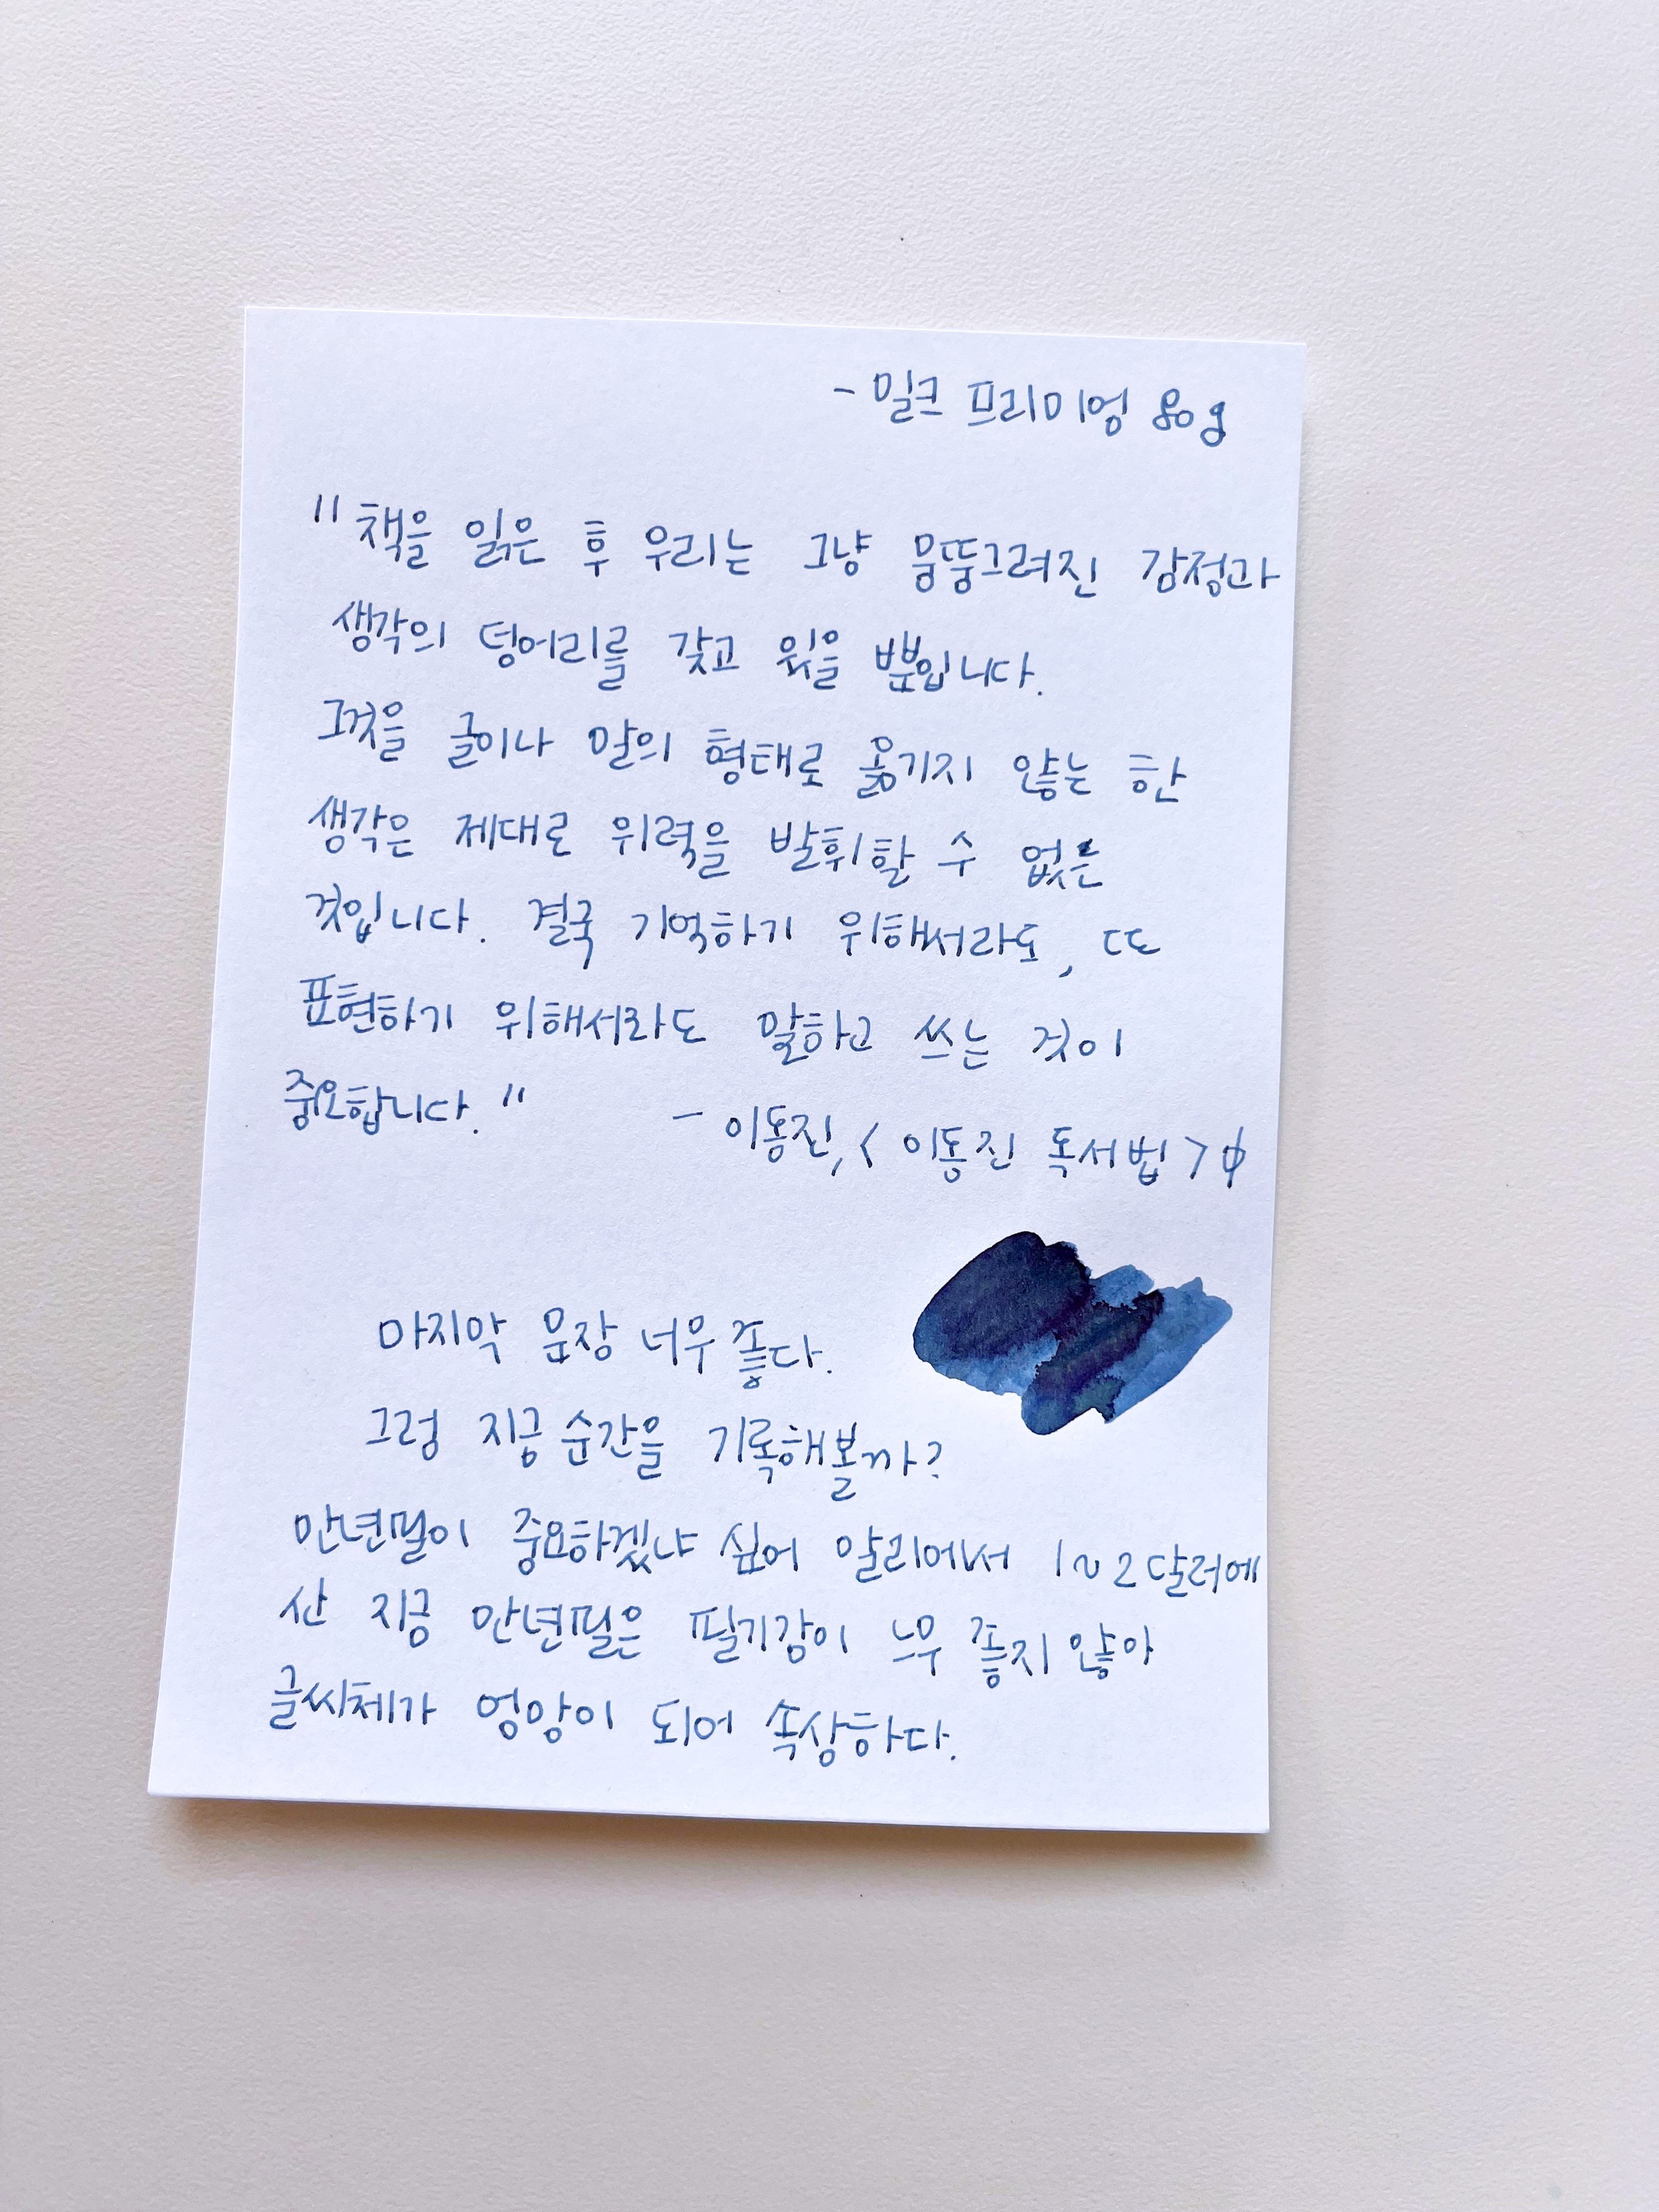 - 밀크 프리미엄 80g
"책을 읽은 후 우리는 그냥 뭉뚱그려진 감정과
생각의 덩어리를 갖고 있을 뿐입니다.
그것을 글이나 말의 형태로 옮기지 않는 한
생각은 제대로 위력을 발휘할 수 없는
것입니다. 결국 기억하기 위해서라도, 또
표현하기 위해서라도 말하고 쓰는 것이
중요합니다."
- 이동진, <이동진 독서법> 中
마지막 문장 너무 좋다.
그럼 지금 순간을 기록해볼까?
만년필이 중요하겠냐 싶어 알리에서 1~2달러에
산 지금 만년필은 필기감이 너무 좋지 않아
글씨체가 엉망이 되어 속상하다.